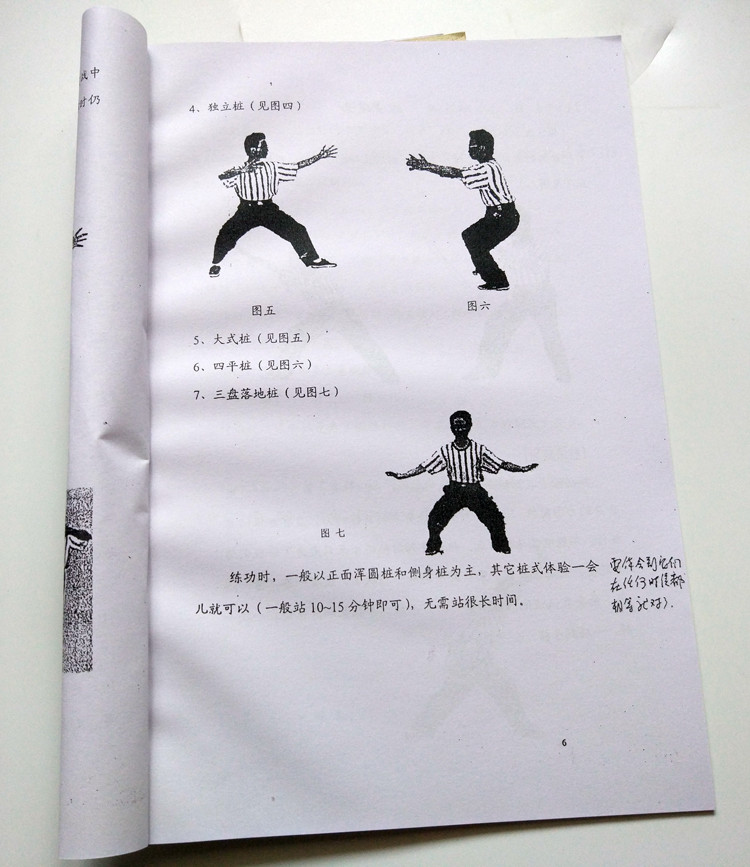 战中
时仍
4、独立桩（见图四）
图五
图六
5、大式桩（见图五）
6、四平桩（见图六）
7、三盘落地桩（见图七）
图 七
练功时，一般以正面浑圆桩和侧身桩为主，其它桩式体验一会
儿就可以（一般站 10~15 分钟即可），无需站很长时间。
在任何时候都
6